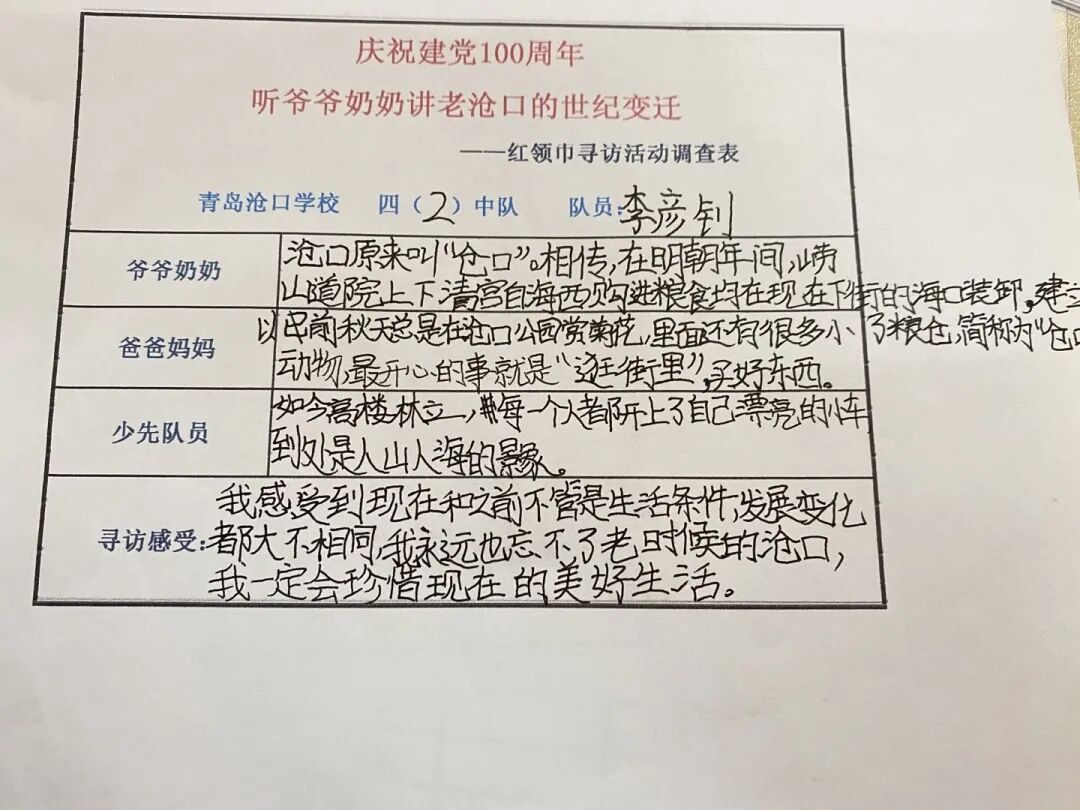 庆祝建党100周年
听爷爷奶奶讲老沧口的世纪变迁
——红领巾寻访活动调查表
青岛沧口学校 四（2）中队 队员:李彦钊
爷爷奶奶
沧口原来叫“仓口”。相传,在明朝年间,崂
山道院上下清宫自海西购进粮食均在现在下街的海口装卸,建立
了粮仓,简称为“仓口
爸爸妈妈
以前秋天总是在沧口公园赏菊花,里面还有很多小
动物,最开心的事就是“逛街里”,买好东西。
少先队员
如今高楼林立,每一个人都开上了自己漂亮的小车
到处是人山人海的景象。
寻访感受:
我感受到现在和之前不管是生活条件,发展变化
都大不相同,我永远也忘不了老时候的沧口,
我一定会珍惜现在的美好生活。